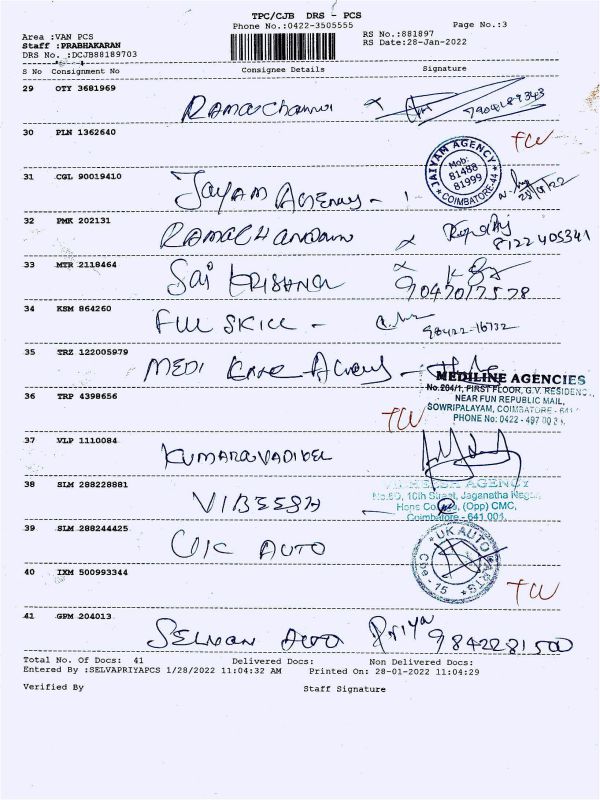 TPC/CJB DRS - PCS
Phone No.:0422-3505555
Page No.:3
Area :VAN PCS
RS No.:881897
Staff :PRABHAKARAN
RS Date:28-Jan-2022
DRS No. :DCJB88189703
S No Consignment No Consignee Details Signature
29 OTY 3681969
Ramachandran
7904189343
30 PLN 1362640
TW
JAIYAM AGENCY
Mob:
81488
81999
COIMBATORE-44
31 CGL 90019410
Jayam Agency -
28/01/22
32 PMK 202131
Ramachandran
8122405341
33 MTR 2118464
Sai Krishna
9047017578
34 KSM 864260
Full Skill -
98422-16732
35 TRZ 122005979
Medi Agency -
MEDILINE AGENCIES
No.204/1, FIRST FLOOR, G.V. RESIDENC
NEAR FUN REPUBLIC MAIL,
SOWRIPALAYAM, COIMBATORE - 641
PHONE No: 0422 - 497
36 TRP 4398656
TW
37 VLP 1110084
Kumaravadivel
38 SLM 288228881
AGENCY
No.60, 10th Street, Jaganatha Nagar,
(Opp) CMC,
Coimbatore - 641 001.
VIBEESH
39 SLM 288244425
UK AUTO
UK AUTO PARTS
Cbe - 15
40 IXM 500993344
TW
41 GPM 204013
Selvan Auto Priya 9842281500
Total No. Of Docs: 41 Delivered Docs: Non Delivered Docs:
Entered By :SELVAPRIYAPCS 1/28/2022 11:04:32 AM Printed On: 28-01-2022 11:04:29
Verified By Staff Signature